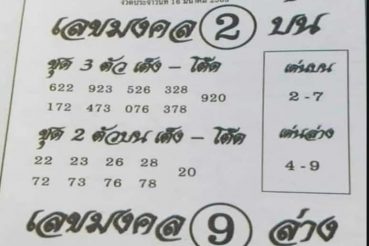 งวดประจำวันที่ 16 มีนาคม 2565
เลขมงคล 2 บน
ชุด 3 ตัว เต็ง – โต๊ด
622 923 526 328
920
172 473 076 378
เด่นบน
2 - 7
ชุด 2 ตัวบน เต็ง – โต๊ด
22 23 26 28
20
72 73 76 78
เด่นล่าง
4 - 9
เลขมงคล 9 ล่าง